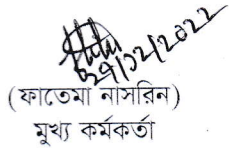 ২৭/১২/২০২২
(ফাতেমা নাসরিন)
মুখ্য কর্মকর্তা